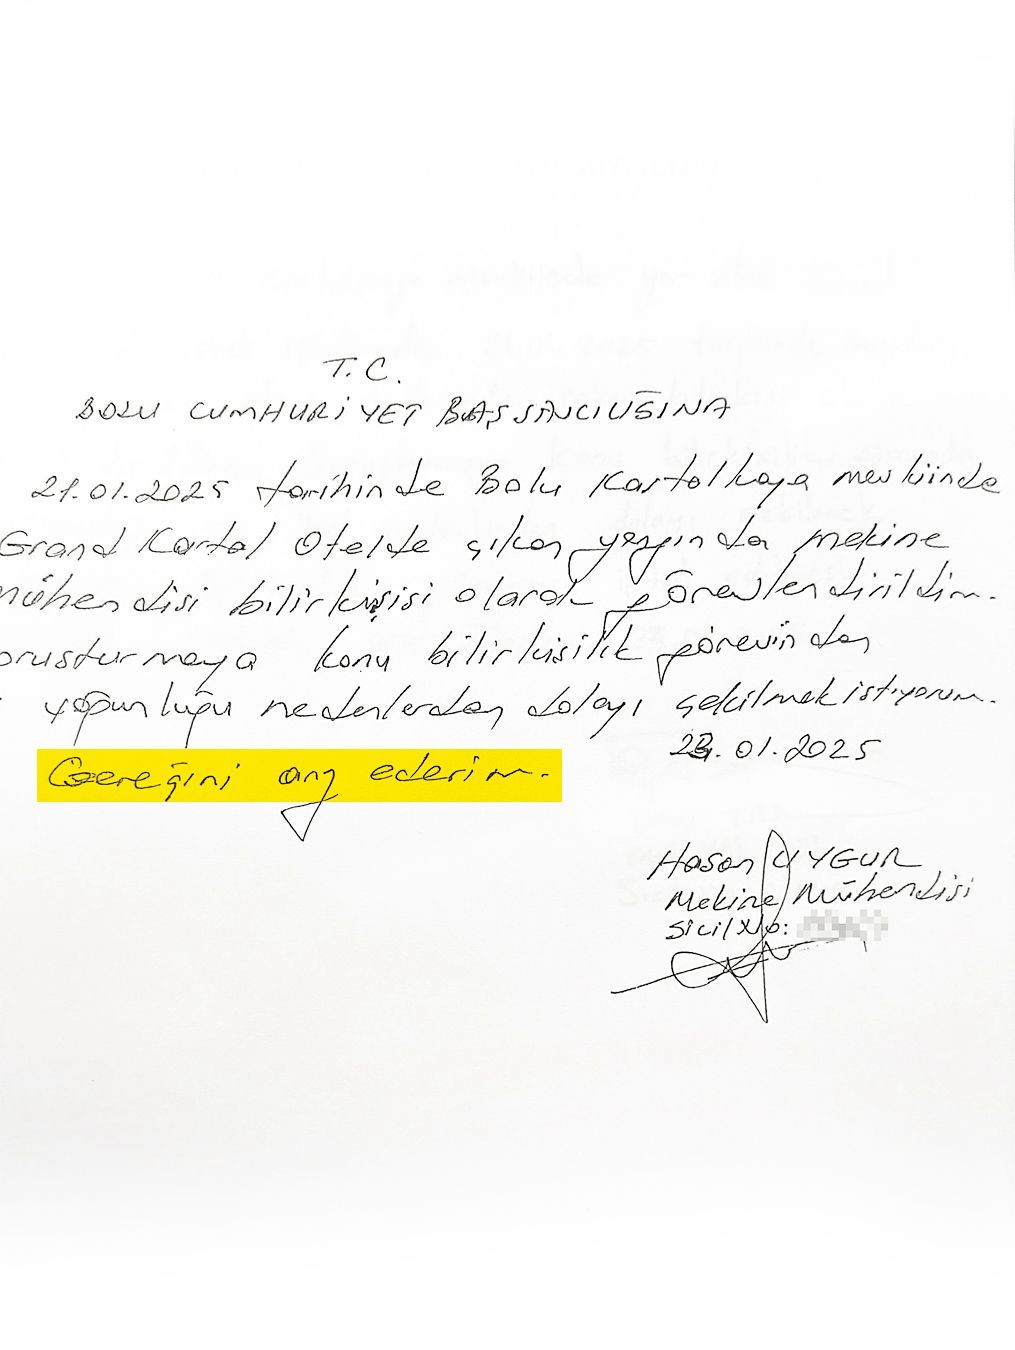 T.C.
BOLU CUMHURİYET BAŞSAVCILIĞINA
21.01.2025 tarihinde Bolu Kartalkaya mevkiinde
Grand Kartal Otelde çıkan yangında makine
mühendisi bilirkişisi olarak görevlendirildim.
oruşturmaya konu bilirkişilik görevinden
yoğunluğu nedenlerden dolayı çekilmek istiyorum.
.01.2025
Gereğini arz ederim.
Hasan UYGUR
Makine Mühendisi
Sicil No: